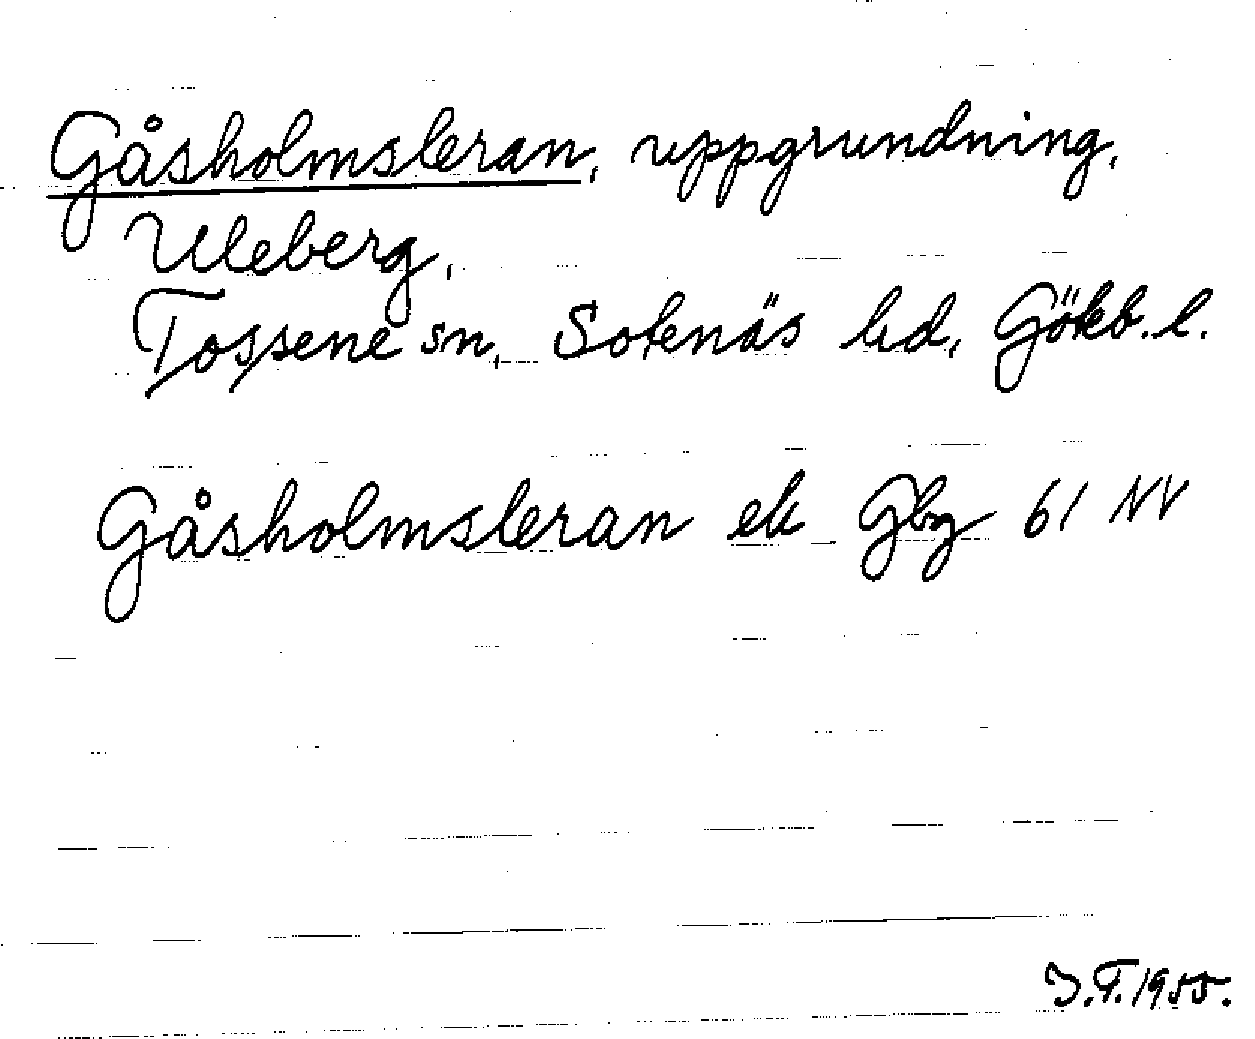 Gåsholmsleran, uppgrundning,
Uleberg,
Tossene sn, Sotenäs hd, Göteb. l.
Gåsholmsleran ek Gbg 61 NV
I.F. 1955.